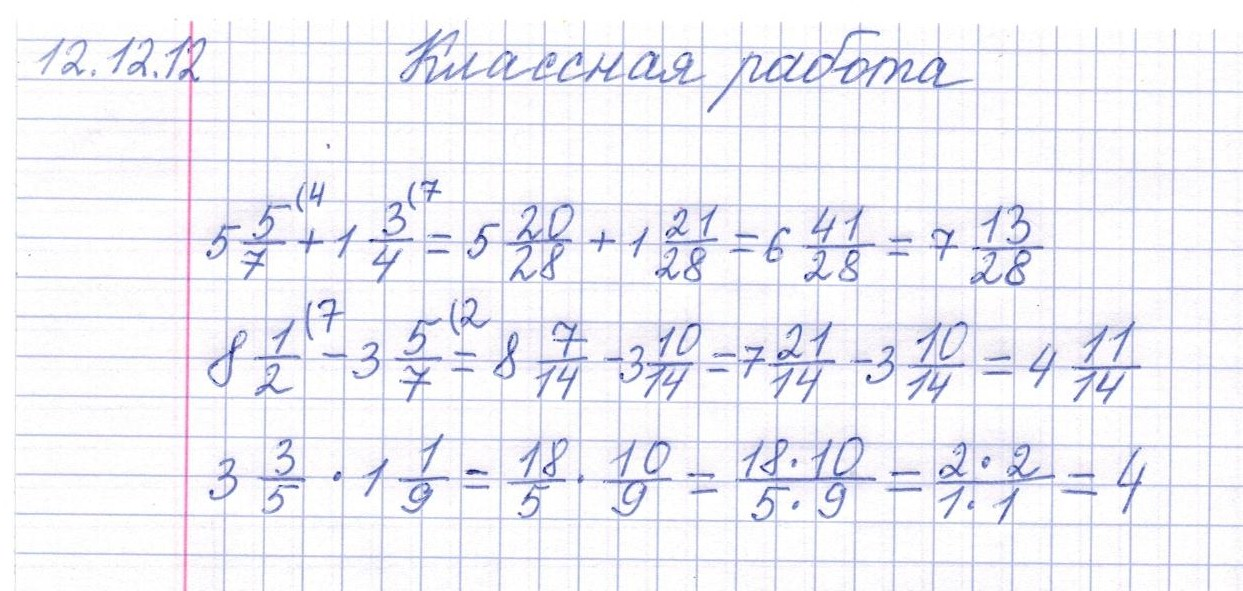 12.12.12 Классная работа
5 5/7 (4 + 1 3/4 (7 = 5 20/28 + 1 21/28 = 6 41/28 = 7 13/28
8 1/2 (7 - 3 5/7 (2 = 8 7/14 - 3 10/14 = 7 21/14 - 3 10/14 = 4 11/14
3 3/5 · 1 1/9 = 18/5 · 10/9 = 18·10/5·9 = 2·2/1·1 = 4